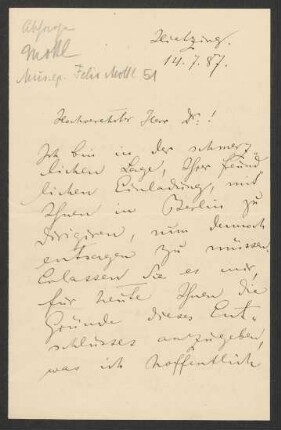 Mottl
Mus. ep. Felix Mottl 51
Hietzing.
14. 7. 87.
Hochverehrter Herr Dr.!
Ich bin in der schmerz-
lichen Lage, Ihrer freund-
lichen Einladung, mit
Ihnen in Berlin zu
dirigiren, nun dennoch
entsagen zu müssen.
Erlassen Sie es mir,
für heute Ihnen die
Gründe dieses Ent-
schlusses anzugeben,
was ich hoffentlich